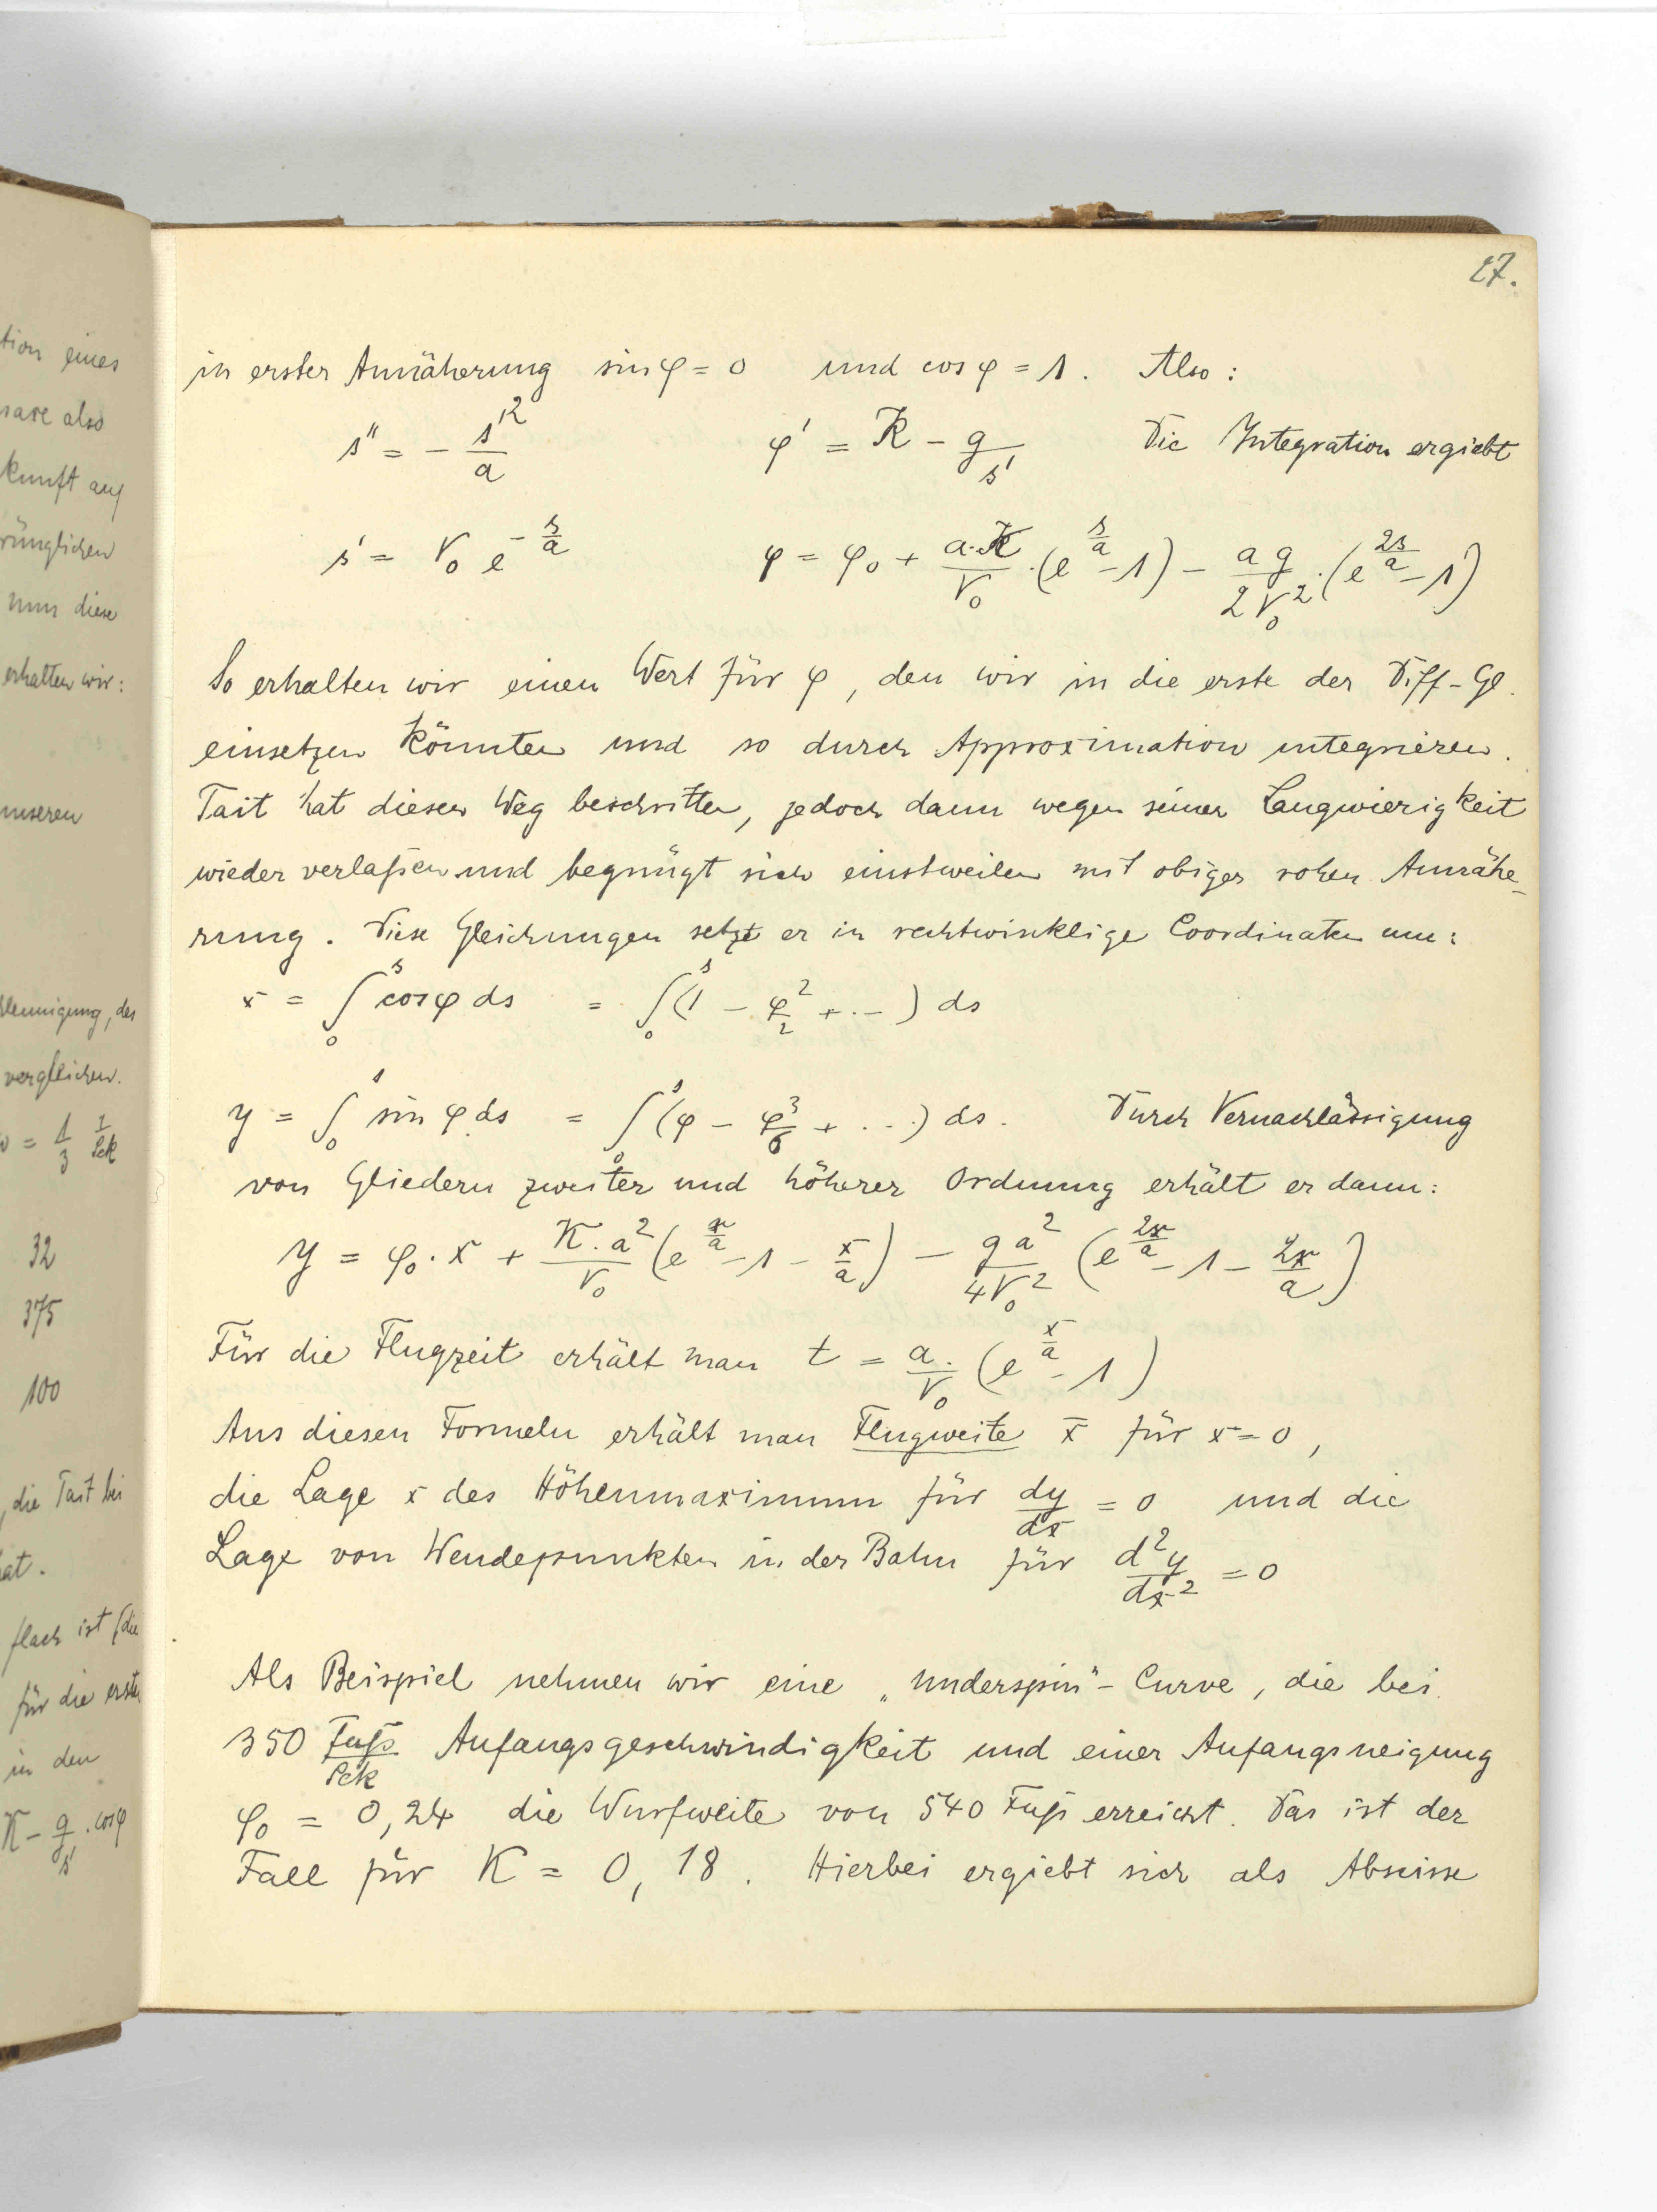 tion eines
sare also
kunft auf
rünglichen
nun diese
erhalten wir:
unseren
leunigung, des
verglichen.
= 1/3 1/Sek
32
375
100
, die Tait bei
at.
flach ist (die
für die erste
in den
K - g/s' . cosφ
27.
in erster Annäherung sin φ = 0 und cos φ = 1. Also:
s'' = - s'²/a φ' = K - g/s' Die Integration ergiebt
s' = V₀ e^(-s/a) φ = φ₀ + a·K/V₀ · (e^(s/a) - 1) - ag/2V₀² · (e^(2s/a) - 1)
So erhalten wir einen Wert für φ, den wir in die erste der Diff-Gl.
einsetzen könnten und so durch Approximation integrieren.
Tait hat diesen Weg beschritten, jedoch dann wegen seiner Langwierigkeit
wieder verlaßen und begnügt sich einstweilen mit obiger rohen Annähe-
rung. Diese Gleichungen setzt er in rechtwinklige Coordinaten um:
x = ∫₀ˢ cos φ ds = ∫₀ˢ (1 - φ²/2 + ··-) ds
y = ∫₀ˢ sin φ ds = ∫₀ˢ (φ - φ³/6 + ...) ds. Durch Vernachlässigung
von Gliedern zweiter und höherer Ordnung erhält er dann:
y = φ₀·x + K·a²/V₀ (e^(x/a) - 1 - x/a) - ga²/4V₀² (e^(2x/a) - 1 - 2x/a)
Für die Flugzeit erhält man t = a/V₀ · (e^(x/a) - 1)
Aus diesen Formeln erhält man Flugweite x̄ für x = 0,
die Lage x des Höhenmaximum für dy/dx = 0 und die
Lage von Wendepunkten in der Bahn für d²y/dx² = 0
Als Beispiel nehmen wir eine „underspin"- Curve, die bei
350 Fuß/Sek Anfangsgeschwindigkeit und einer Anfangsneigung
φ₀ = 0,24 die Wurfweite von 540 Fuß erreicht. Das ist der
Fall für K = 0,18. Hierbei ergiebt sich als Abscisse